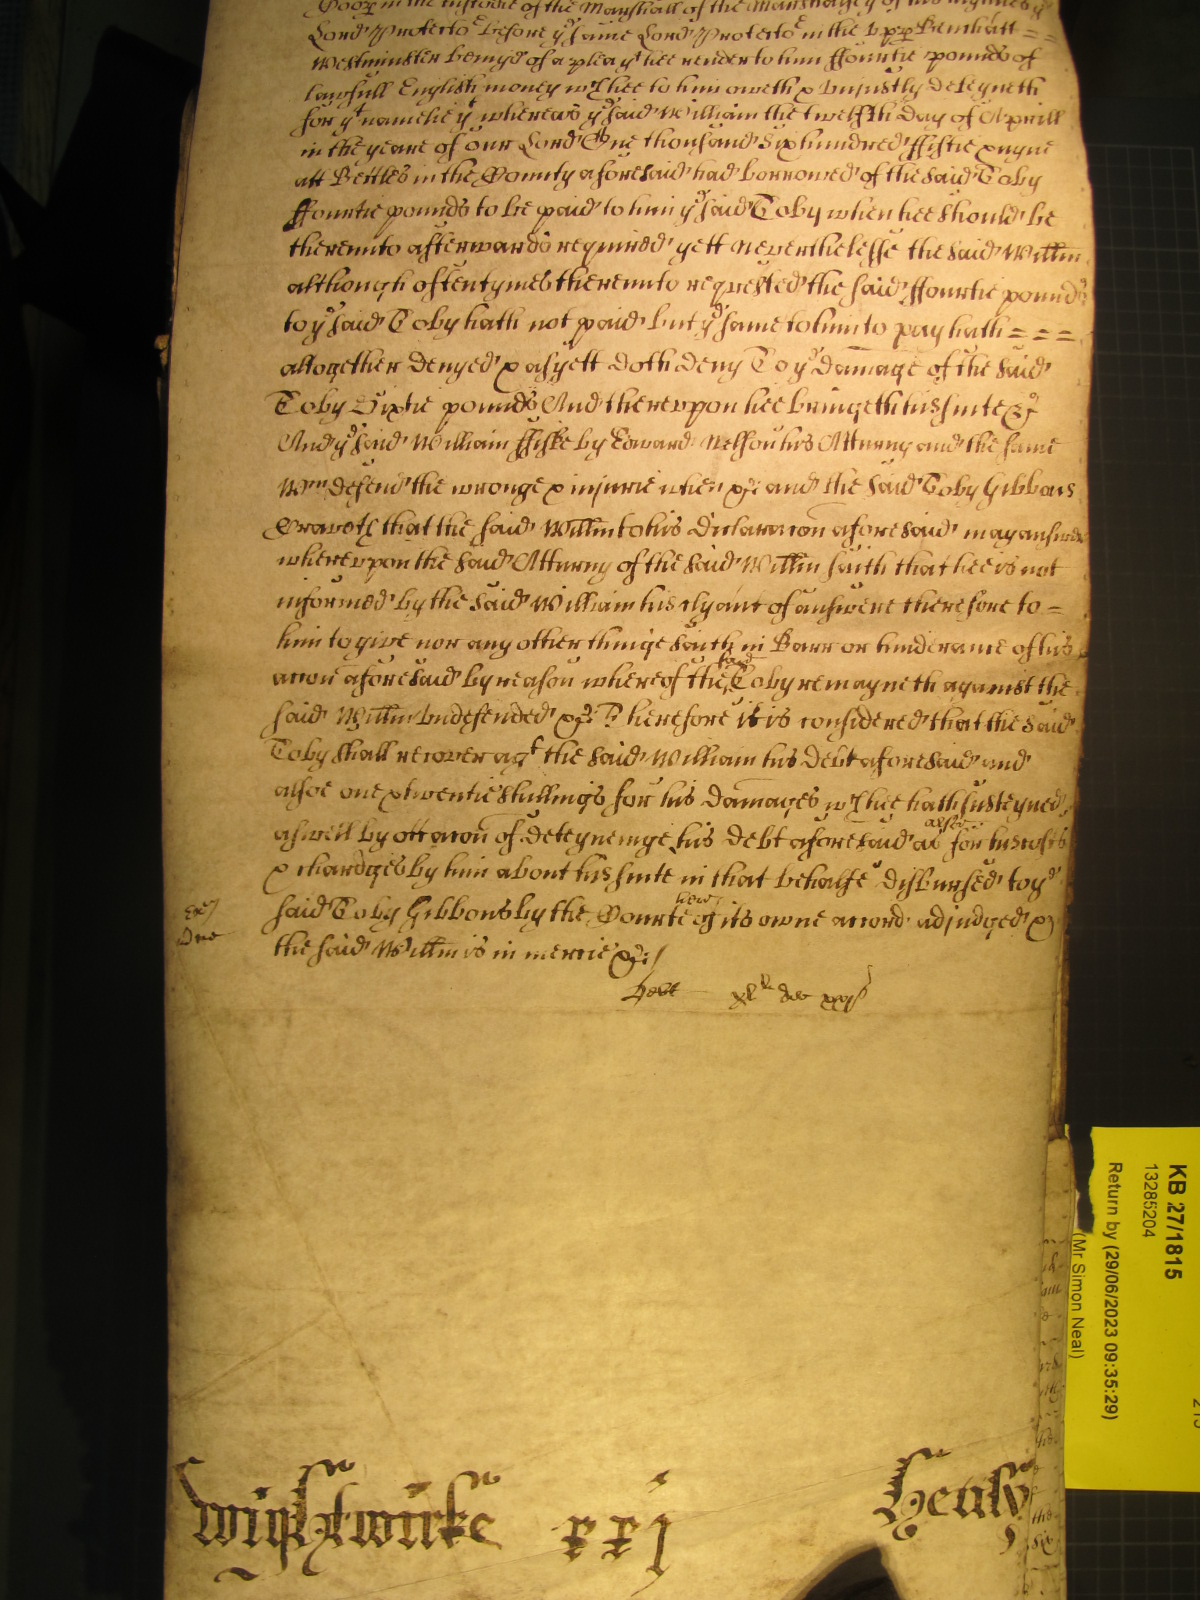 in the custodie of the Marshall of the Marshalsey of his highnes ye
Lord Protector before ye same Lord Protector in the Upp Bench att = =
Westminster being of a plea yt hee render to him ffourtie pounds of
lawfull English money wch hee to him oweth & unjustly deteyneth
for yt namelie yt whereas ye said William the twelfth day of Aprill
in the yeare of our Lord One thousand Six hundred ffiftie & nyne
att Beccles in the County aforesaid had borrowed of the said Toby
ffourtie pounds to be paid to him ye said Toby when hee should be
thereunto afterwards required yett neverthelesse the said Willm
although oftentymes thereunto requested the said ffourtie pounds
to ye said Toby hath not paid but ye same to him to pay hath = = =
altogether denyed & as yett doth deny To ye damage of the said
Toby Sixtie pounds And thereupon hee bringeth his suite &c
And ye said William ffiske by Edward Nelson his Atturny and the same
Wm defend the wronge & injurie when &c: and the said Toby Gibbons
Craveth that the said Willm to his Declaracon aforesaid may answer
whereupon the said Atturny of the said Willm saith that hee is not
informed by the said William his clyant of answere therefore to =
him to give nor any other thinge saith in Barr or hinderance of his
accon aforesaid by reason whereof the said Toby remayneth against the
said Willm Undefended &c: Therefore it is considered that the said
Toby shall recover agt the said William his Debt aforesaid and
alsoe one & twentie shillings for his damages wch hee hath susteyned
aswell by occacon of deteyneinge his debt aforesaid as alsoe for his costs
& chardges by him about his suite in that behalfe disbursed to ye
said Toby Gibbons by the Courte heere of its owne accord adjudged &
the said Willm is in mercie &c: /
Debt xlli dam xxjs
Wightwicke xxj Henly
KB 27/1815
13285204
Return by (29/06/2023 09:35:29)
(Mr Simon Neal)